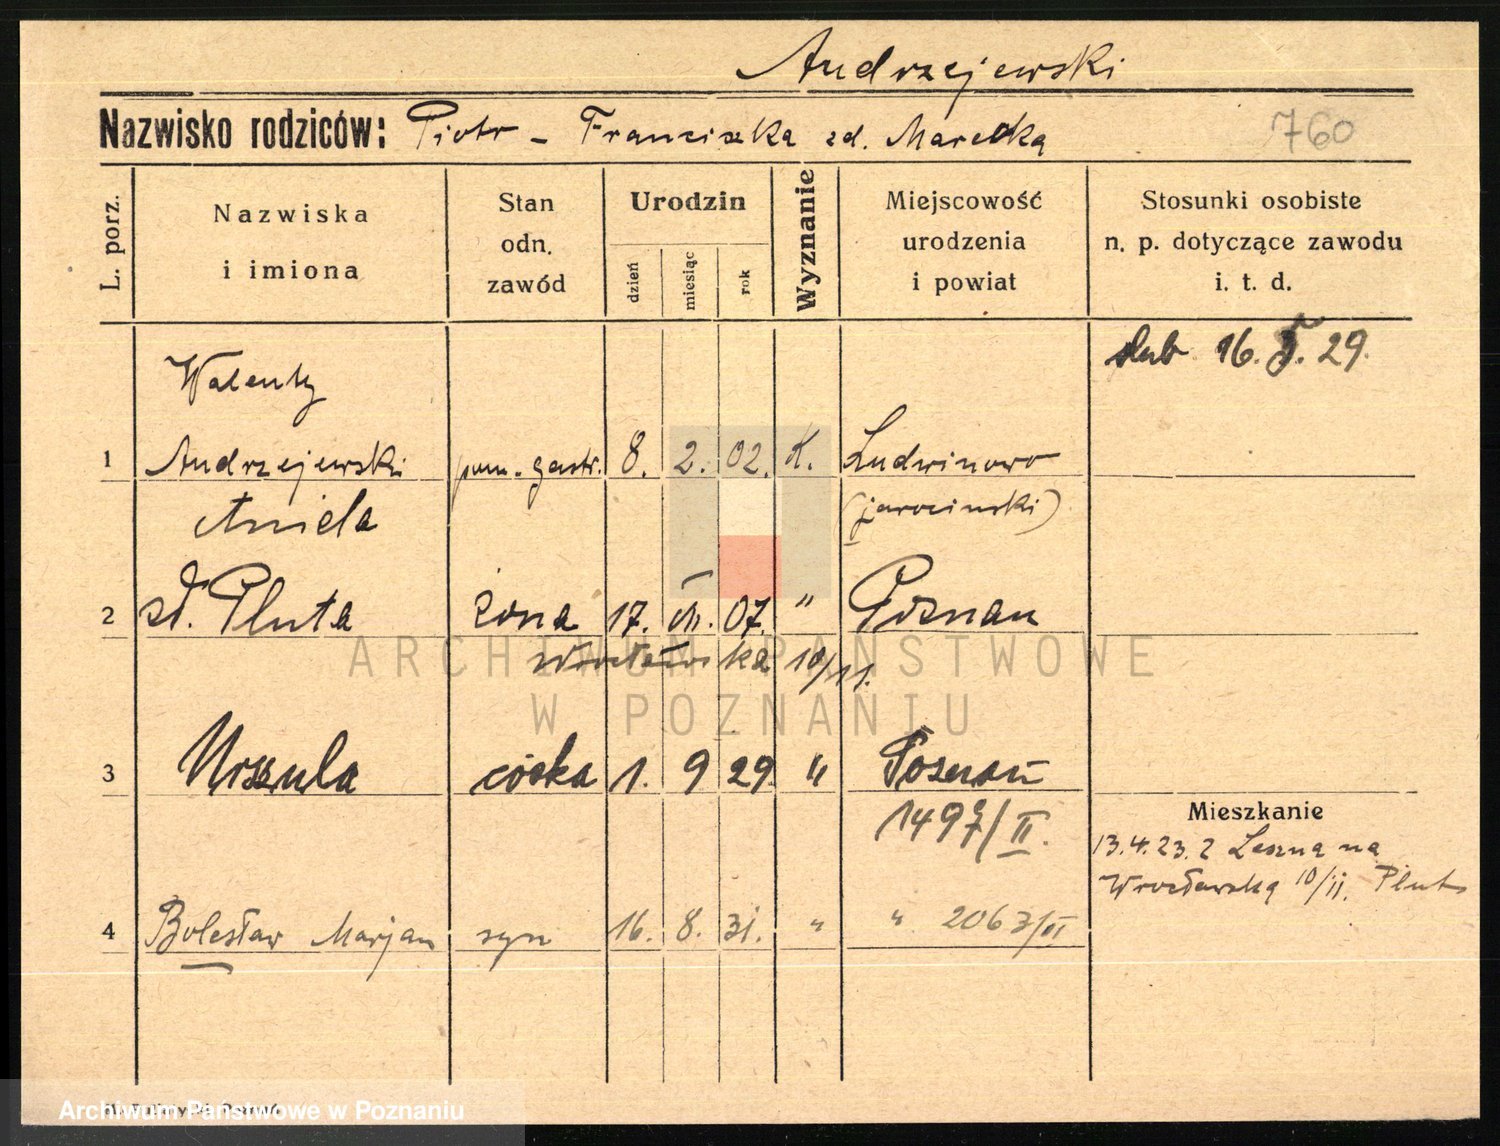 Andrzejewski
Nazwisko rodziców: Piotr - Franciszka zd. Marecka
760
L. porz.
Nazwiska
i imiona
Stan
odn.
zawód
Urodzin
dzień
miesiąc
rok
Wyznanie
Miejscowość
urodzenia
i powiat
Stosunki osobiste
n. p. dotyczące zawodu
i. t. d.
16. 29.
Walenty
1 Andrzejewski pom. gastr. 8. 2. 02. K. Ludwinowo
(jarociński)
Aniela
2 Pluta żona 17. 07. " Poznań
Wrocławska 10/11.
3 Urszula córka 1. 9 29. " Poznań
1497/II.
Mieszkanie
13.4.23. z Leszna na
Wrocławską 10/II. Pluta
4 Bolesław Marjan syn 16. 8. 31. " " 2063/II
ARCHIWUM PAŃSTWOWE
W POZNANIU
Archiwum Państwowe w Poznaniu